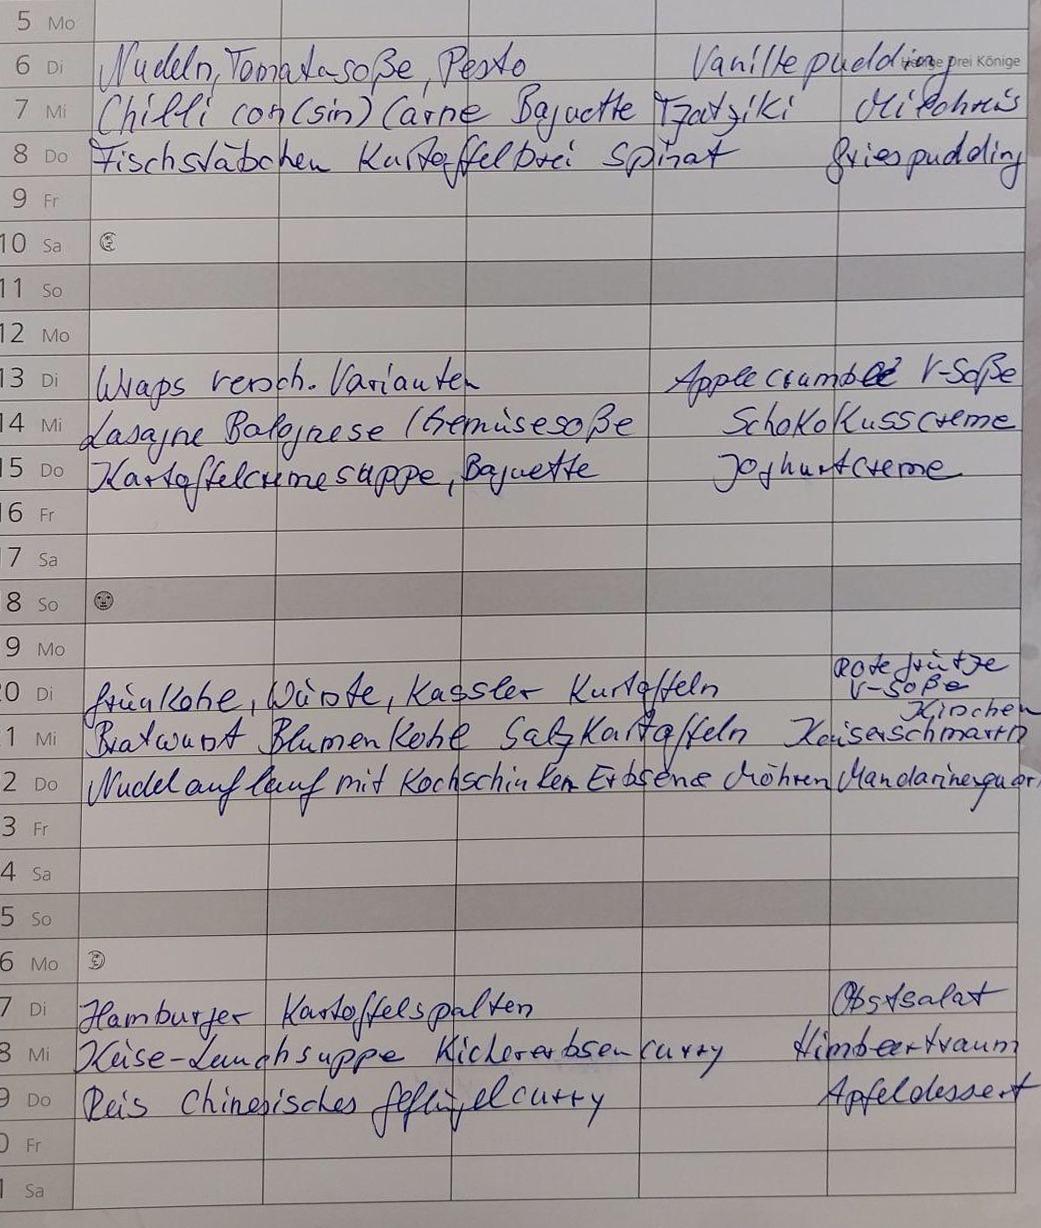 5 Mo
6 Di Nudeln, Tomatasoße, Pesto Vanillepudding Drei Könige
7 Mi Chilli con (sin) Carne Baguette Tzatziki Milchreis
8 Do Fischstäbchen Kartoffelbrei Spinat Griespudding
9 Fr
10 Sa
11 So
12 Mo
13 Di Wraps versch. Varianten Applecrumble V-Soße
14 Mi Lasagne Bolognese / Gemüsesoße Schokokusscreme
15 Do Kartoffelcremesuppe, Baguette Joghurtcreme
16 Fr
17 Sa
8 So
9 Mo
0 Di Grünkohl, Würste, Kassler Kartoffeln Rote Grütze V-Soße
1 Mi Bratwurst Blumenkohl Salzkartoffeln Kirschen Kaiserschmarrn
2 Do Nudelauflauf mit Kochschinken Erbsen Möhren Mandarinenquar
3 Fr
4 Sa
5 So
6 Mo
7 Di Hamburger Kartoffelspalten Obstsalat
8 Mi Käse-Lauchsuppe Kichererbsencurry Himbeertraum
9 Do Reis Chinesisches Geflügelcurry Apfeldessert
0 Fr
1 Sa